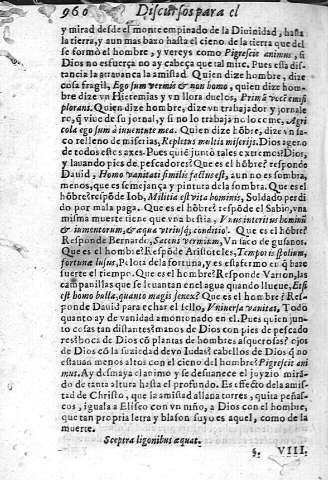 960 Discursos para el
y mirad desde el monte empinado de la Diuinidad, hasta
la tierra, y aun mas baxo hasta el cieno de la tierra que del
se formó el hombre, y vereys como Pigrescit animus, si
Dios no esfuerça no ay cabeça que tal mire. Pues essa dis-
tancia la atrauanca la amistad. Quien dize hombre, dize
cosa fragil, Ego sum vermis & non homo, quien dize hom-
bre dize vn Hieremias y vn llora duelos, Primã vocē emisi
plorans. Quien dize hombre, dize vn trabajador y jornale
ro, q̃ viue de su jornal, y si no lo trabaja no lo come, Agri
cola ego sum à iuuentute mea. Quien dize hõbre, dize vn sa-
co relleno de miserias, Repletus multis miserijs. Dios agen-
o de todos esses axes. Pues què juntò tales extremos? Dios,
y lauando pies de pescadores? Que es el hõbre? responde
Dauid, Homo vanitati similis factus est, aun no es sombra,
menos, que es semejança y pintura de la sombra. Que es el
hõbre? respõde Iob, Militia est vita hominis, Soldado perdi
do por mala paga. Que es el hõbre? respõde el Sabio, vna
misma muerte tiene que vna bestia, Vnus interitus hominũ
& iumentorum, & æqua vtriusq; conditio. Que es el hõbre?
Responde Bernardo, Saccus vermium, Vn saco de gusanos.
Que es el hombre? Respõde Aristoteles, Temporis spolium,
fortunæ lusus, Pelota de la fortuna, y estafermo en q̃ haze
suerte el tiempo. Que es el hombre? Responde Varron, las
campanillas que se leuantan en el agua quando llueue, Si
est homo bulla, quanto magis senex? Que es el hombre? Res-
ponde Dauid para echar el sello, Vniuersa vanitas, Todo
quanto ay de vanidad amontonado en el. Pues quien jun-
tò cosas tan distantes? manos de Dios con pies de pescado
res? boca de Dios cõ plantas de hombres asquerosas? ojos
de Dios cõ la suziedad de vn Iudas? cabellos de Dios q̃ no
estauan menos altos con el cieno del hombre? Pigrescit ani
mus. Ay desmaya el animo y se desuanece el juyzio mirã-
do de tanta altura hasta el profundo. Es effecto de la amis-
tad de Christo, que la amistad allana torres, quita peñas-
cos, iguala a Eliseo con vn niño, a Dios con el hombre,
que tan propria letra y blason suyo es aquel, como de la
muerte.
Sceptra ligonibus æquat.
§. VIII.